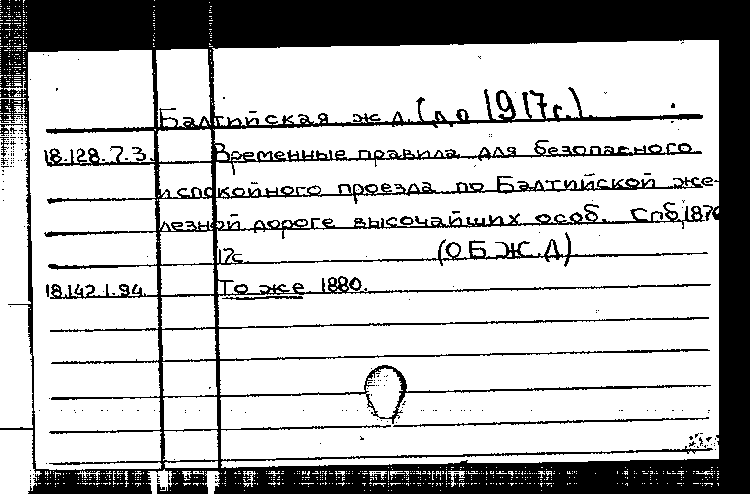 Балтийская ж.д. (до 1917г.).
18.128.7.3. Временные правила для безопасного
и спокойного проезда по Балтийской же-
лезной дороге высочайших особ. Спб, 1876
17с (ОБЖ.Д)
18.142.1.94. То же 1880.